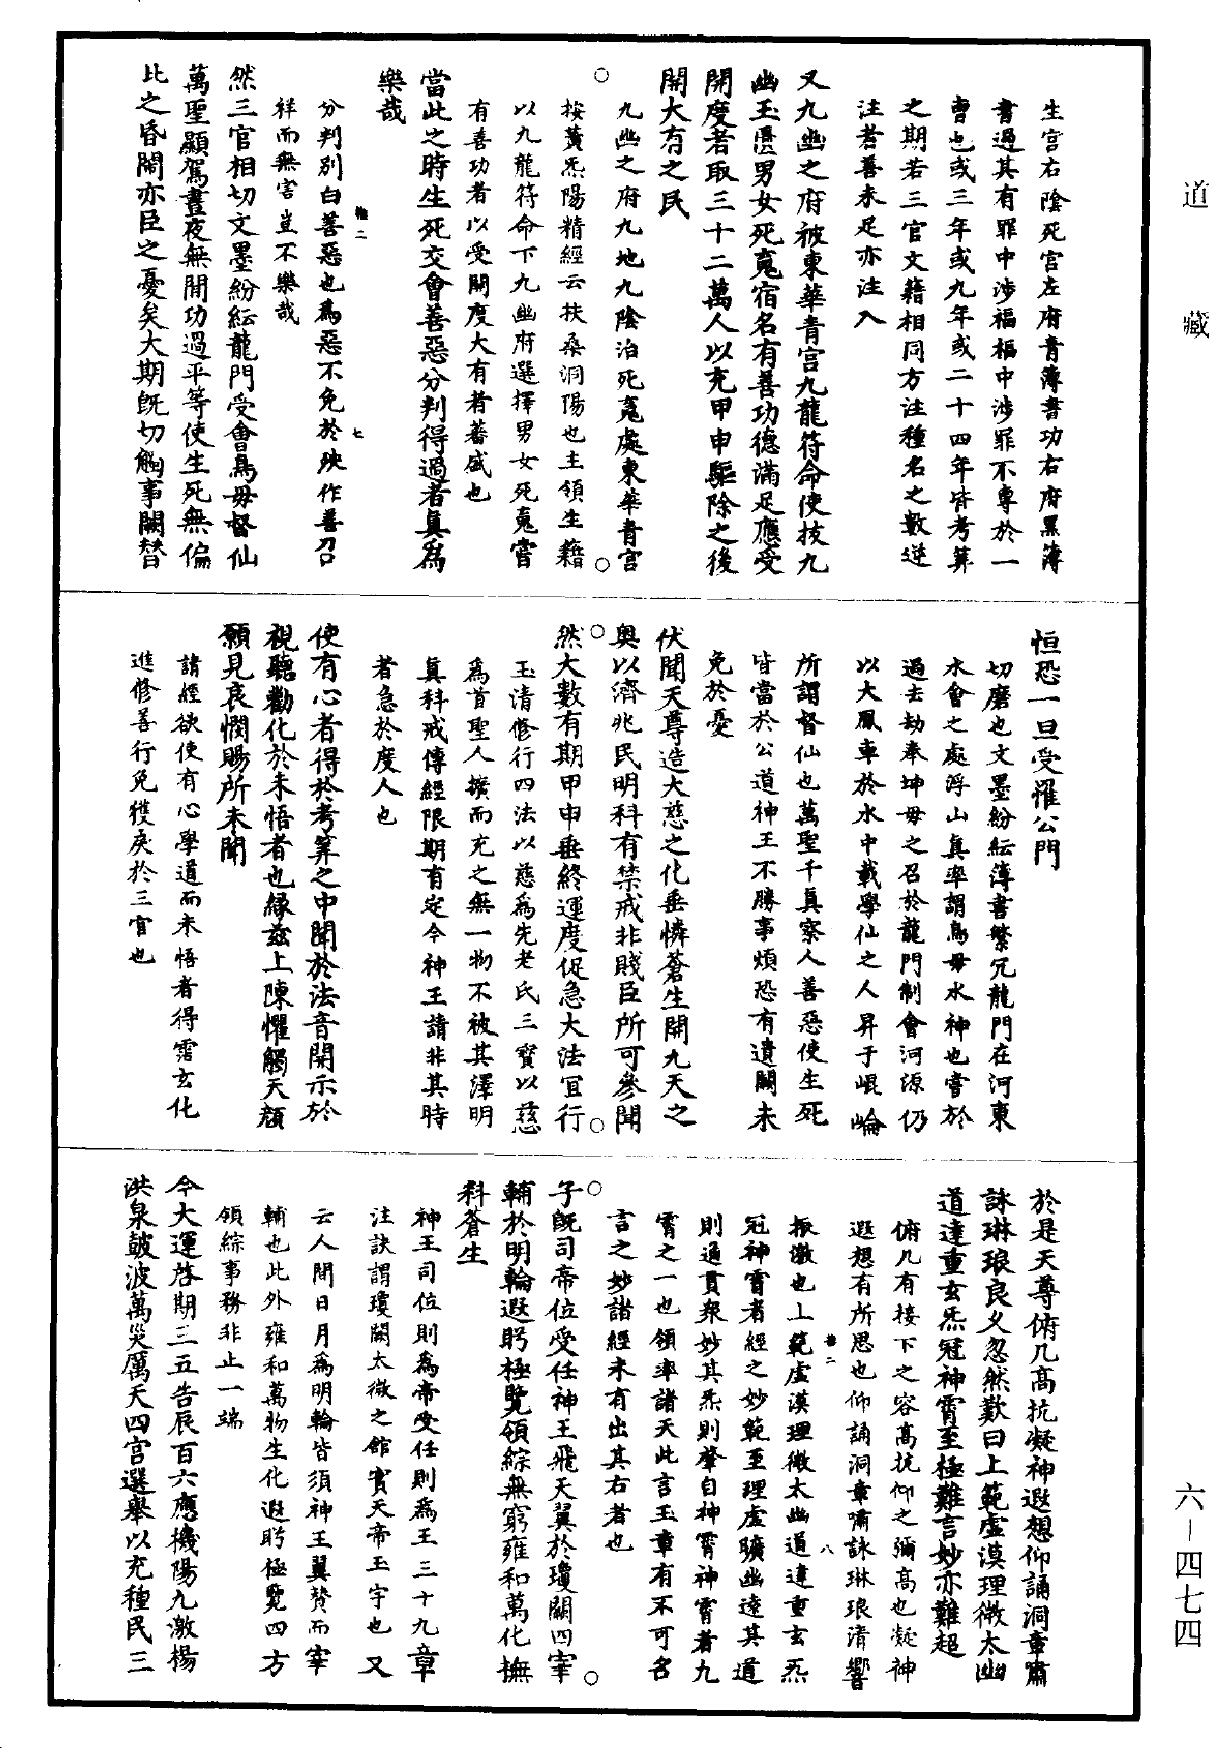 道藏
生宮右陰死宮左府青簿書功右府黑簿
書過其有罪中涉福福中涉罪不專於一
曹也或三年或九年或二十四年皆考筭
之期若三官文籍相同方注種名之數逆
注若善未足亦注入
又九幽之府被東華青宮九龍符命使拔九
幽玉匱男女死䰟宿名有善功德滿足應受
開度者取三十二萬人以充甲申驅除之後
開大有之民
九幽之府九地九陰泊死䰟處東華青宮
按黃炁陽精經云扶桑洞陽也主領生籍
以九龍符命下九幽府選擇男女死䰟嘗
有善功者以受開度大有者蕃盛也
當此之時生死交會善惡分判得過者真為
樂哉
分判別白善惡也為惡不免於殃作善召
祥而無害豈不樂哉
然三官相切文墨紛紜龍門受會鳥母督仙
萬聖顯駕晝夜無閒功過平等使生死無偏
比之昏闇亦臣之憂矣大期旣切觸事闕替
恒恐一旦受罹公門
切磨也文墨紛紜薄書繁冗龍門在河東
水會之處浮山真率謂鳥母水神也嘗於
過去劫奉坤母之召於龍門制會河源仍
以大鳳車於水中載學仙之人昇于崐崘
所謂督仙也萬聖千真察人善惡使生死
皆當於公道神王不勝事煩恐有遺闕未
免於憂
伏聞天尊造大慈之化垂憐蒼生開九天之
奧以濟兆民明科有禁戒非賤臣所可參聞
然大數有期甲申垂終運度促急大法宜行
玉清修行四法以慈為先老氏三寶以慈
為首聖人擴而充之無一物不被其澤明
真科戒傳經限期有定今神王請非其時
者急於度人也
使有心者得於考筭之中聞於法音開示於
視聽勸化於未悟者也緣茲上陳懼觸天顏
願見哀憫賜所未聞
請經欲使有心學道而未悟者得霑玄化
進修善行免獲戾於三官也
於是天尊俯几高抗凝神遐想仰誦洞章嘯
詠琳琅良久忽然歎曰上範虛漠理微太幽
道達重玄炁冠神霄至極難言妙亦難超
俯几有接下之容高抗仰之彌高也凝神
遐想有所思也仰誦洞章嘯詠琳琅清響
振激也上範虛漠理微太幽道達重玄炁
冠神霄者經之妙範至理虛曠幽遠其道
則過貫衆妙其炁則聲自神霄神霄者九
霄之一也領率諸天此言玉章有不可名
言之妙諸經未有出其右者也
子旣司帝位受任神王飛天翼於瓊闕四宰
輔於明輪遐眄極覽領綜無窮雍和萬化撫
料蒼生
神王司位則為帝受任則為王三十九章
注訣謂瓊闕太微之館賓天帝玉宇也又
云人間日月為明輪皆須神王翼贊而宰
輔也此外雍和萬物生化遐眄極覽四方
領綜事務非止一端
今大運啓期三五告辰百六應機陽九激楊
洪泉皷波萬災厲天四宮選舉以充種民三
六—四七四